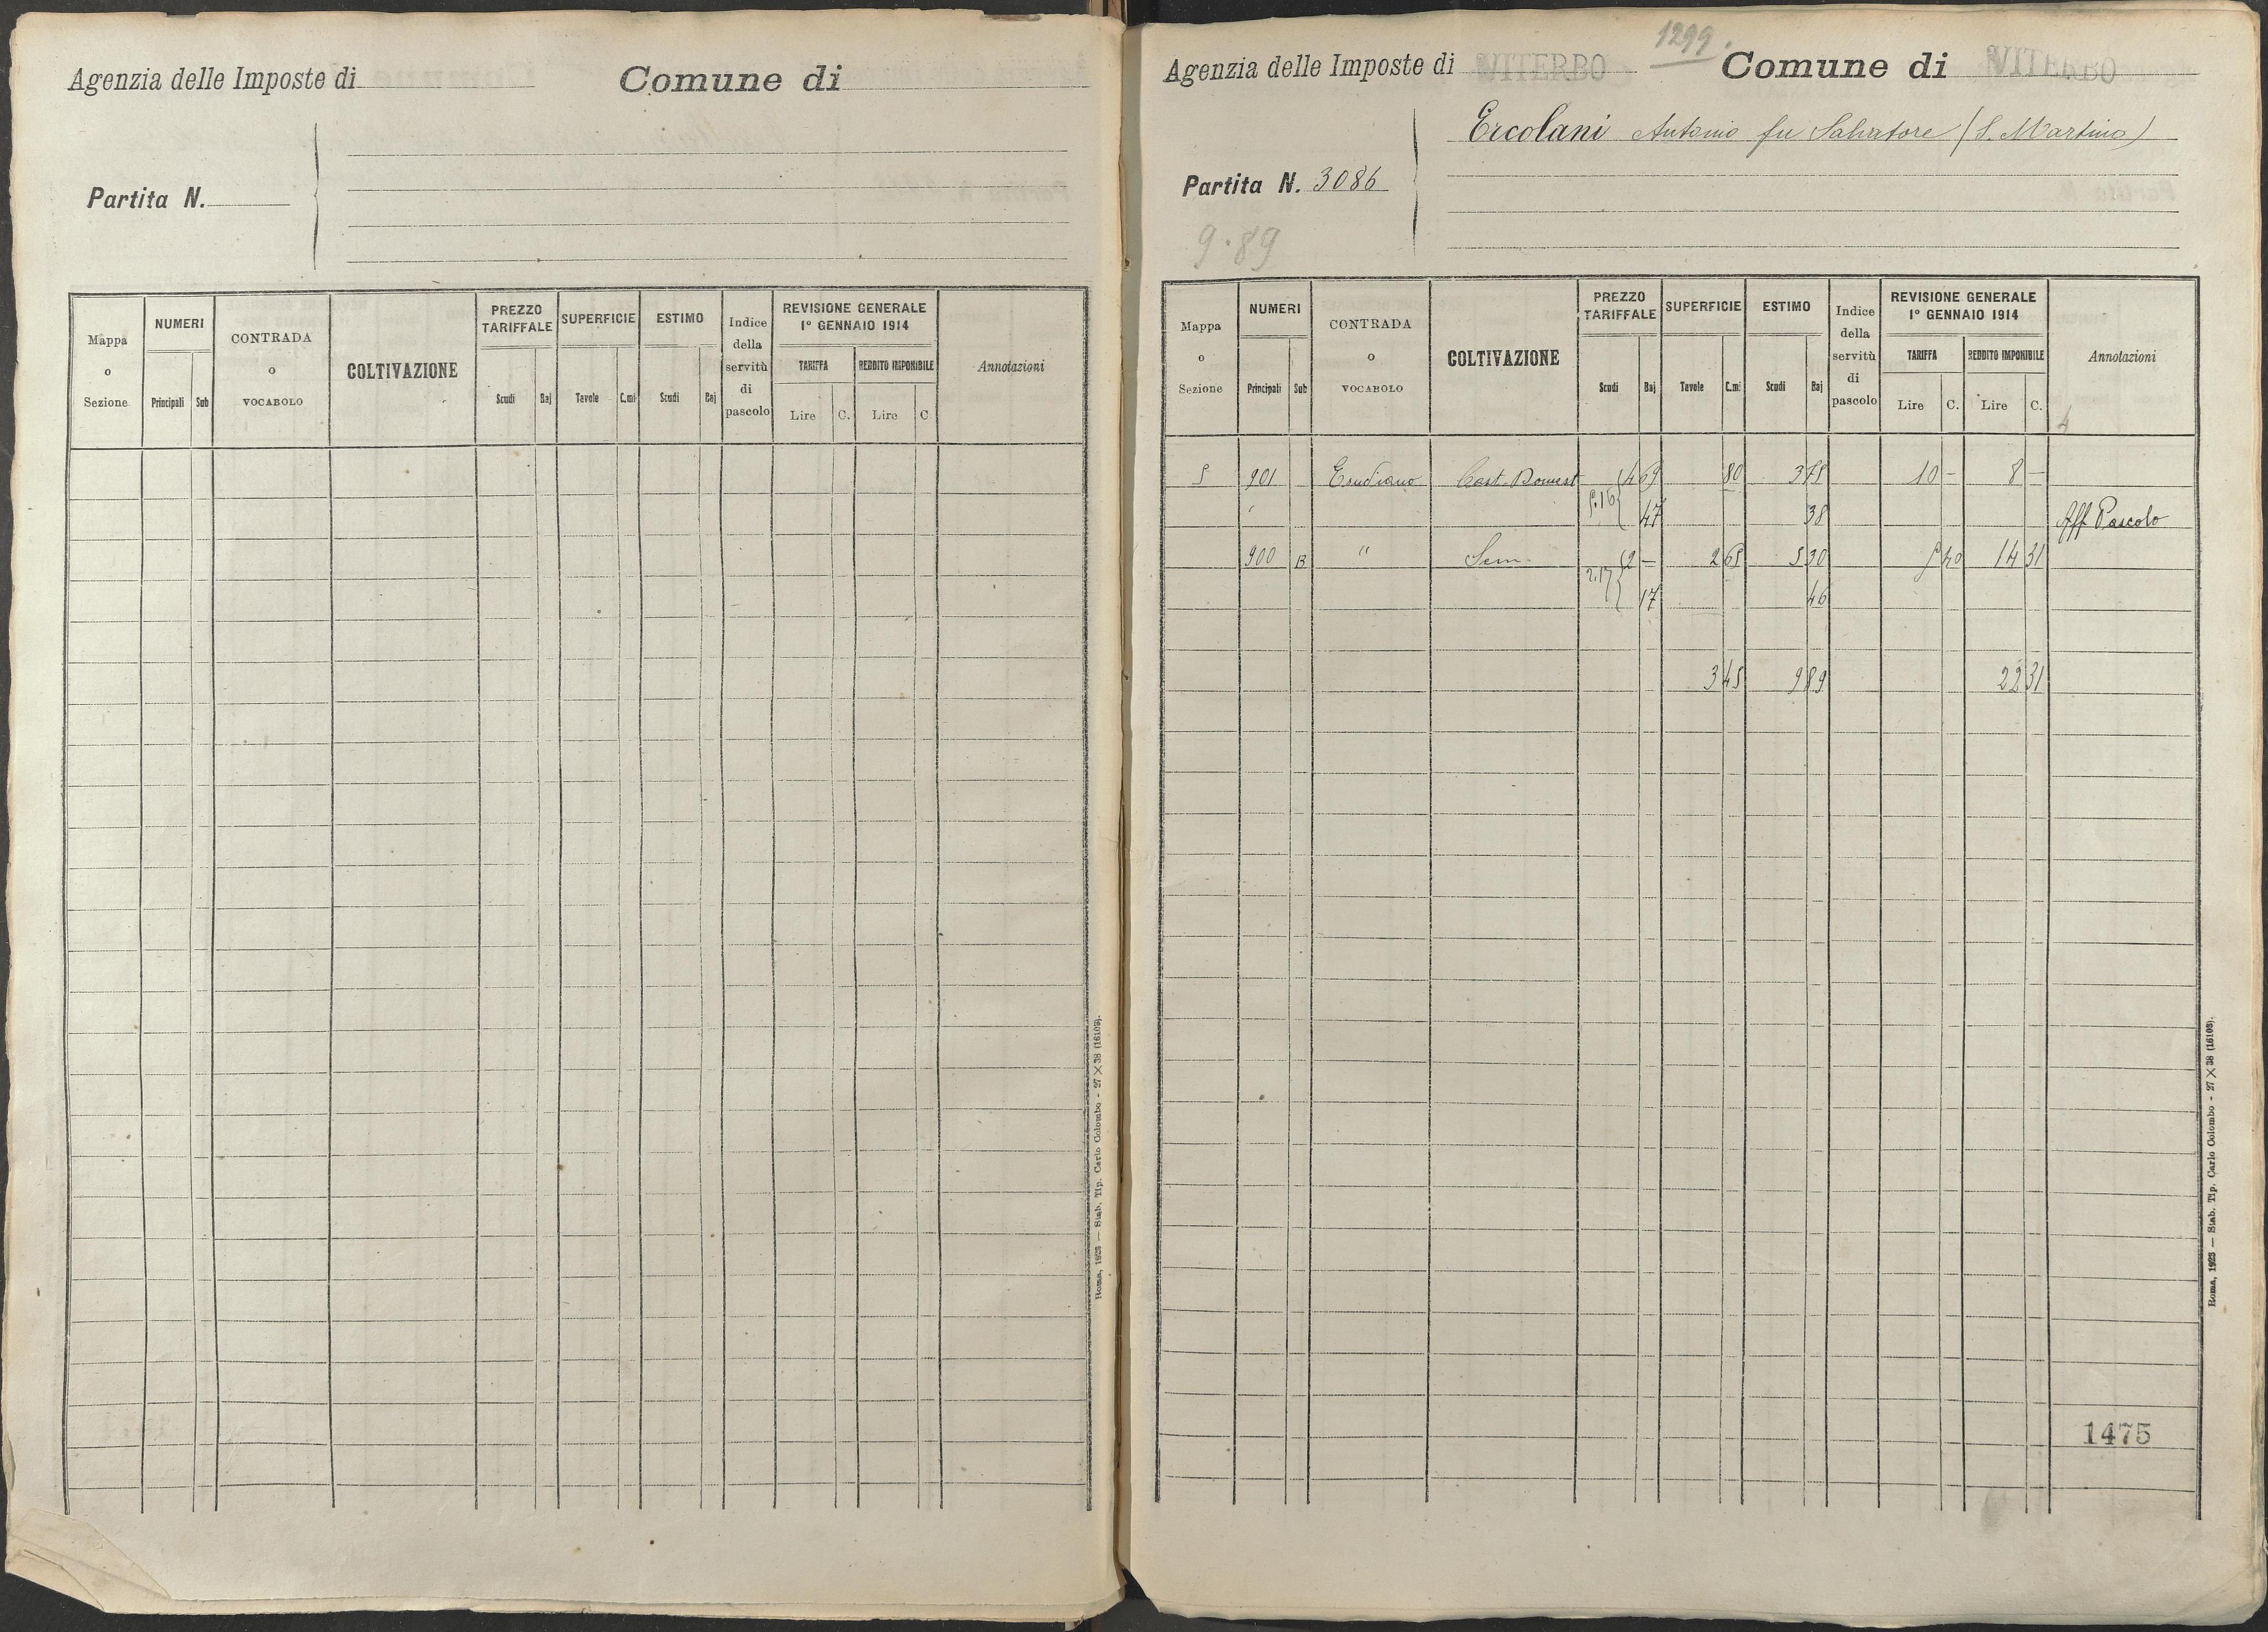 Agenzia delle Imposte di
Comune di
Partita N.
Mappa o Sezione
NUMERI
Principali
Sub
CONTRADA o VOCABOLO
COLTIVAZIONE
PREZZO TARIFFALE
Scudi
Baj
SUPERFICIE
Tavole
C.mi
ESTIMO
Scudi
Baj
Indice della servitù di pascolo
REVISIONE GENERALE
1° GENNAIO 1914
TARIFFA
REDDITO IMPONIBILE
Lire
C.
Lire
C
Annotazioni
Roma, 1923 — Stab. Tip. Carlo Colombo - 27 × 38 (16103).
1299.
Agenzia delle Imposte di VITERBO
Comune di VITERBO
Ercolani Antonio fu Salvatore (S. Martino)
Partita N. 3086
9.89
Mappa o Sezione
NUMERI
Principali
Sub
CONTRADA o VOCABOLO
COLTIVAZIONE
PREZZO TARIFFALE
Scudi
Baj
SUPERFICIE
Tavole
C.mi
ESTIMO
Scudi
Baj
Indice della servitù di pascolo
REVISIONE GENERALE
1° GENNAIO 1914
TARIFFA
REDDITO IMPONIBILE
Lire
C.
Lire
C.
Annotazioni
901 Cast. 4 69 80 3 75 10 - 8 -
5.16 47 38 Aff Pascolo
900 B " Sem. 2 - 2 65 5 30 5 40 14 31
2.17 17 46
3 45 9 89 22 31
1475
Roma, 1923 — Stab. Tip. Carlo Colombo - 27 × 38 (16103).